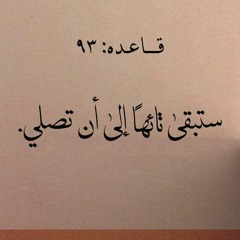 قـاعده: ٩٣
ستبقىٰ تائهًا إلىٰ أن تصلي.